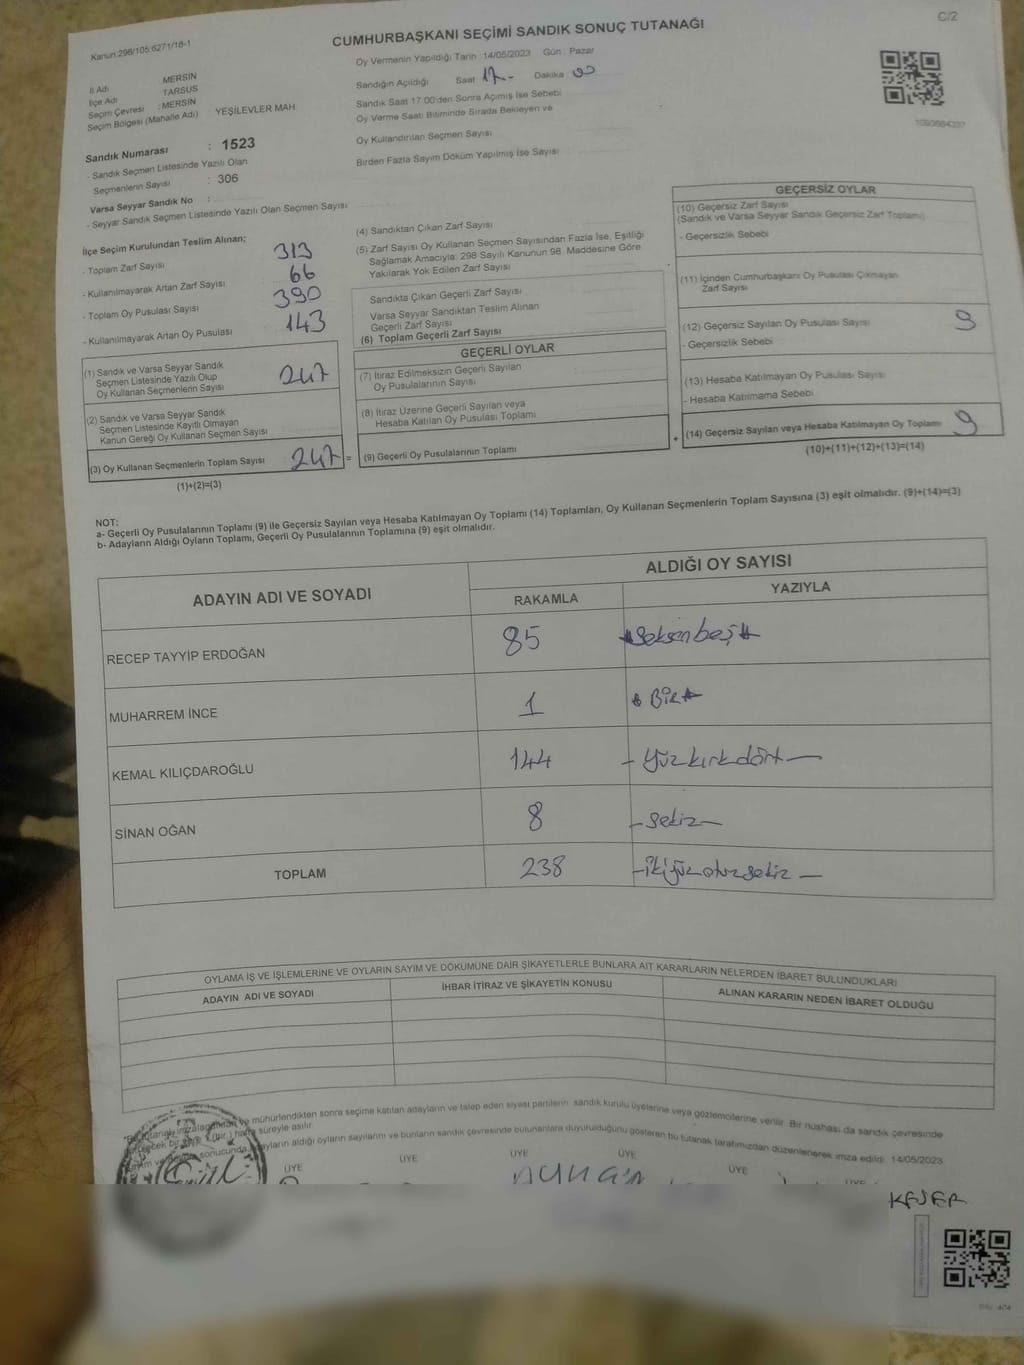 C/2
Kanun:298/105;6271/18-1
CUMHURBAŞKANI SEÇİMİ SANDIK SONUÇ TUTANAĞI
İl Adı MERSİN
İlçe Adı TARSUS
Seçim Çevresi : MERSİN
Seçim Bölgesi (Mahalle Adı) YEŞİLEVLER MAH
Sandık Numarası : 1523
- Sandık Seçmen Listesinde Yazılı Olan
Seçmenlerin Sayısı : 306
Varsa Seyyar Sandık No :
- Seyyar Sandık Seçmen Listesinde Yazılı Olan Seçmen Sayısı
Oy Vermenin Yapıldığı Tarih :14/05/2023 Gün : Pazar
Sandığın Açıldığı Saat 17- Dakika 00
Sandık Saat 17:00'den Sonra Açımış İse Sebebi
Oy Verme Saati Bitiminde Sırada Bekleyen ve
Oy Kullandırılan Seçmen Sayısı
Birden Fazla Sayım Döküm Yapılmış İse Sayısı
İlçe Seçim Kurulundan Teslim Alınan;
- Toplam Zarf Sayısı 313
- Kullanılmayarak Artan Zarf Sayısı 66
- Toplam Oy Pusulası Sayısı 390
- Kullanılmayarak Artan Oy Pusulası 143
(1) Sandık ve Varsa Seyyar Sandık
Seçmen Listesinde Yazılı Olup
Oy Kullanan Seçmenlerin Sayısı 247
(2) Sandık ve Varsa Seyyar Sandık
Seçmen Listesinde Kayıtlı Olmayan
Kanun Gereği Oy Kullanan Seçmen Sayısı
(3) Oy Kullanan Seçmenlerin Toplam Sayısı 247 =
(1)+(2)=(3)
(4) Sandıktan Çıkan Zarf Sayısı
(5) Zarf Sayısı Oy Kullanan Seçmen Sayısından Fazla İse, Eşitliği
Sağlamak Amacıyla; 298 Sayılı Kanunun 98. Maddesine Göre
Yakılarak Yok Edilen Zarf Sayısı
Sandıkta Çıkan Geçerli Zarf Sayısı
Varsa Seyyar Sandıktan Teslim Alınan
Geçerli Zarf Sayısı
(6) Toplam Geçerli Zarf Sayısı
GEÇERLİ OYLAR
(7) İtiraz Edilmeksizin Geçerli Sayılan
Oy Pusulalarının Sayısı
(8) İtiraz Üzerine Geçerli Sayılan veya
Hesaba Katılan Oy Pusulası Toplamı
(9) Geçerli Oy Pusulalarının Toplamı +
GEÇERSİZ OYLAR
(10) Geçersiz Zarf Sayısı
(Sandık ve Varsa Seyyar Sandık Geçersiz Zarf Toplamı)
- Geçersizlik Sebebi
(11) İçinden Cumhurbaşkanı Oy Pusulası Çıkmayan
Zarf Sayısı
(12) Geçersiz Sayılan Oy Pusulası Sayısı 9
- Geçersizlik Sebebi
(13) Hesaba Katılmayan Oy Pusulası Sayısı
- Hesaba Katılmama Sebebi
(14) Geçersiz Sayılan veya Hesaba Katılmayan Oy Toplamı 9
(10)+(11)+(12)+(13)=(14)
NOT:
a- Geçerli Oy Pusulalarının Toplamı (9) ile Geçersiz Sayılan veya Hesaba Katılmayan Oy Toplamı (14) Toplamları, Oy Kullanan Seçmenlerin Toplam Sayısına (3) eşit olmalıdır. (9)+(14)=(3)
b- Adayların Aldığı Oyların Toplamı, Geçerli Oy Pusulalarının Toplamına (9) eşit olmalıdır.
ADAYIN ADI VE SOYADI ALDIĞI OY SAYISI
RAKAMLA YAZIYLA
RECEP TAYYİP ERDOĞAN 85 Seksenbeş
MUHARREM İNCE 1 Bir
KEMAL KILIÇDAROĞLU 144 - Yüzkırkdört -
SİNAN OĞAN 8 - Sekiz -
TOPLAM 238 - İkiyüzotuzsekiz -
OYLAMA İŞ VE İŞLEMLERİNE VE OYLARIN SAYIM VE DÖKÜMÜNE DAİR ŞİKAYETLERLE BUNLARA AİT KARARLARIN NELERDEN İBARET BULUNDUKLARI
ADAYIN ADI VE SOYADI İHBAR İTİRAZ VE ŞİKAYETİN KONUSU ALINAN KARARIN NEDEN İBARET OLDUĞU
mühürlendikten sonra seçime katılan adayların ve talep eden siyasi partilerin, sandık kurulu üyelerine veya gözlemcilerine verilir. Bir nüshası da sandık çevresinde
süreyle asılır.
sonucunda, adayların aldığı oyların sayılarını ve bunların sandık çevresinde bulunanlara duyurulduğunu gösteren bu tutanak tarafımızdan düzenlenerek imza edildi. 14/05/2023
ÜYE ÜYE ÜYE ÜYE ÜYE ÜYE